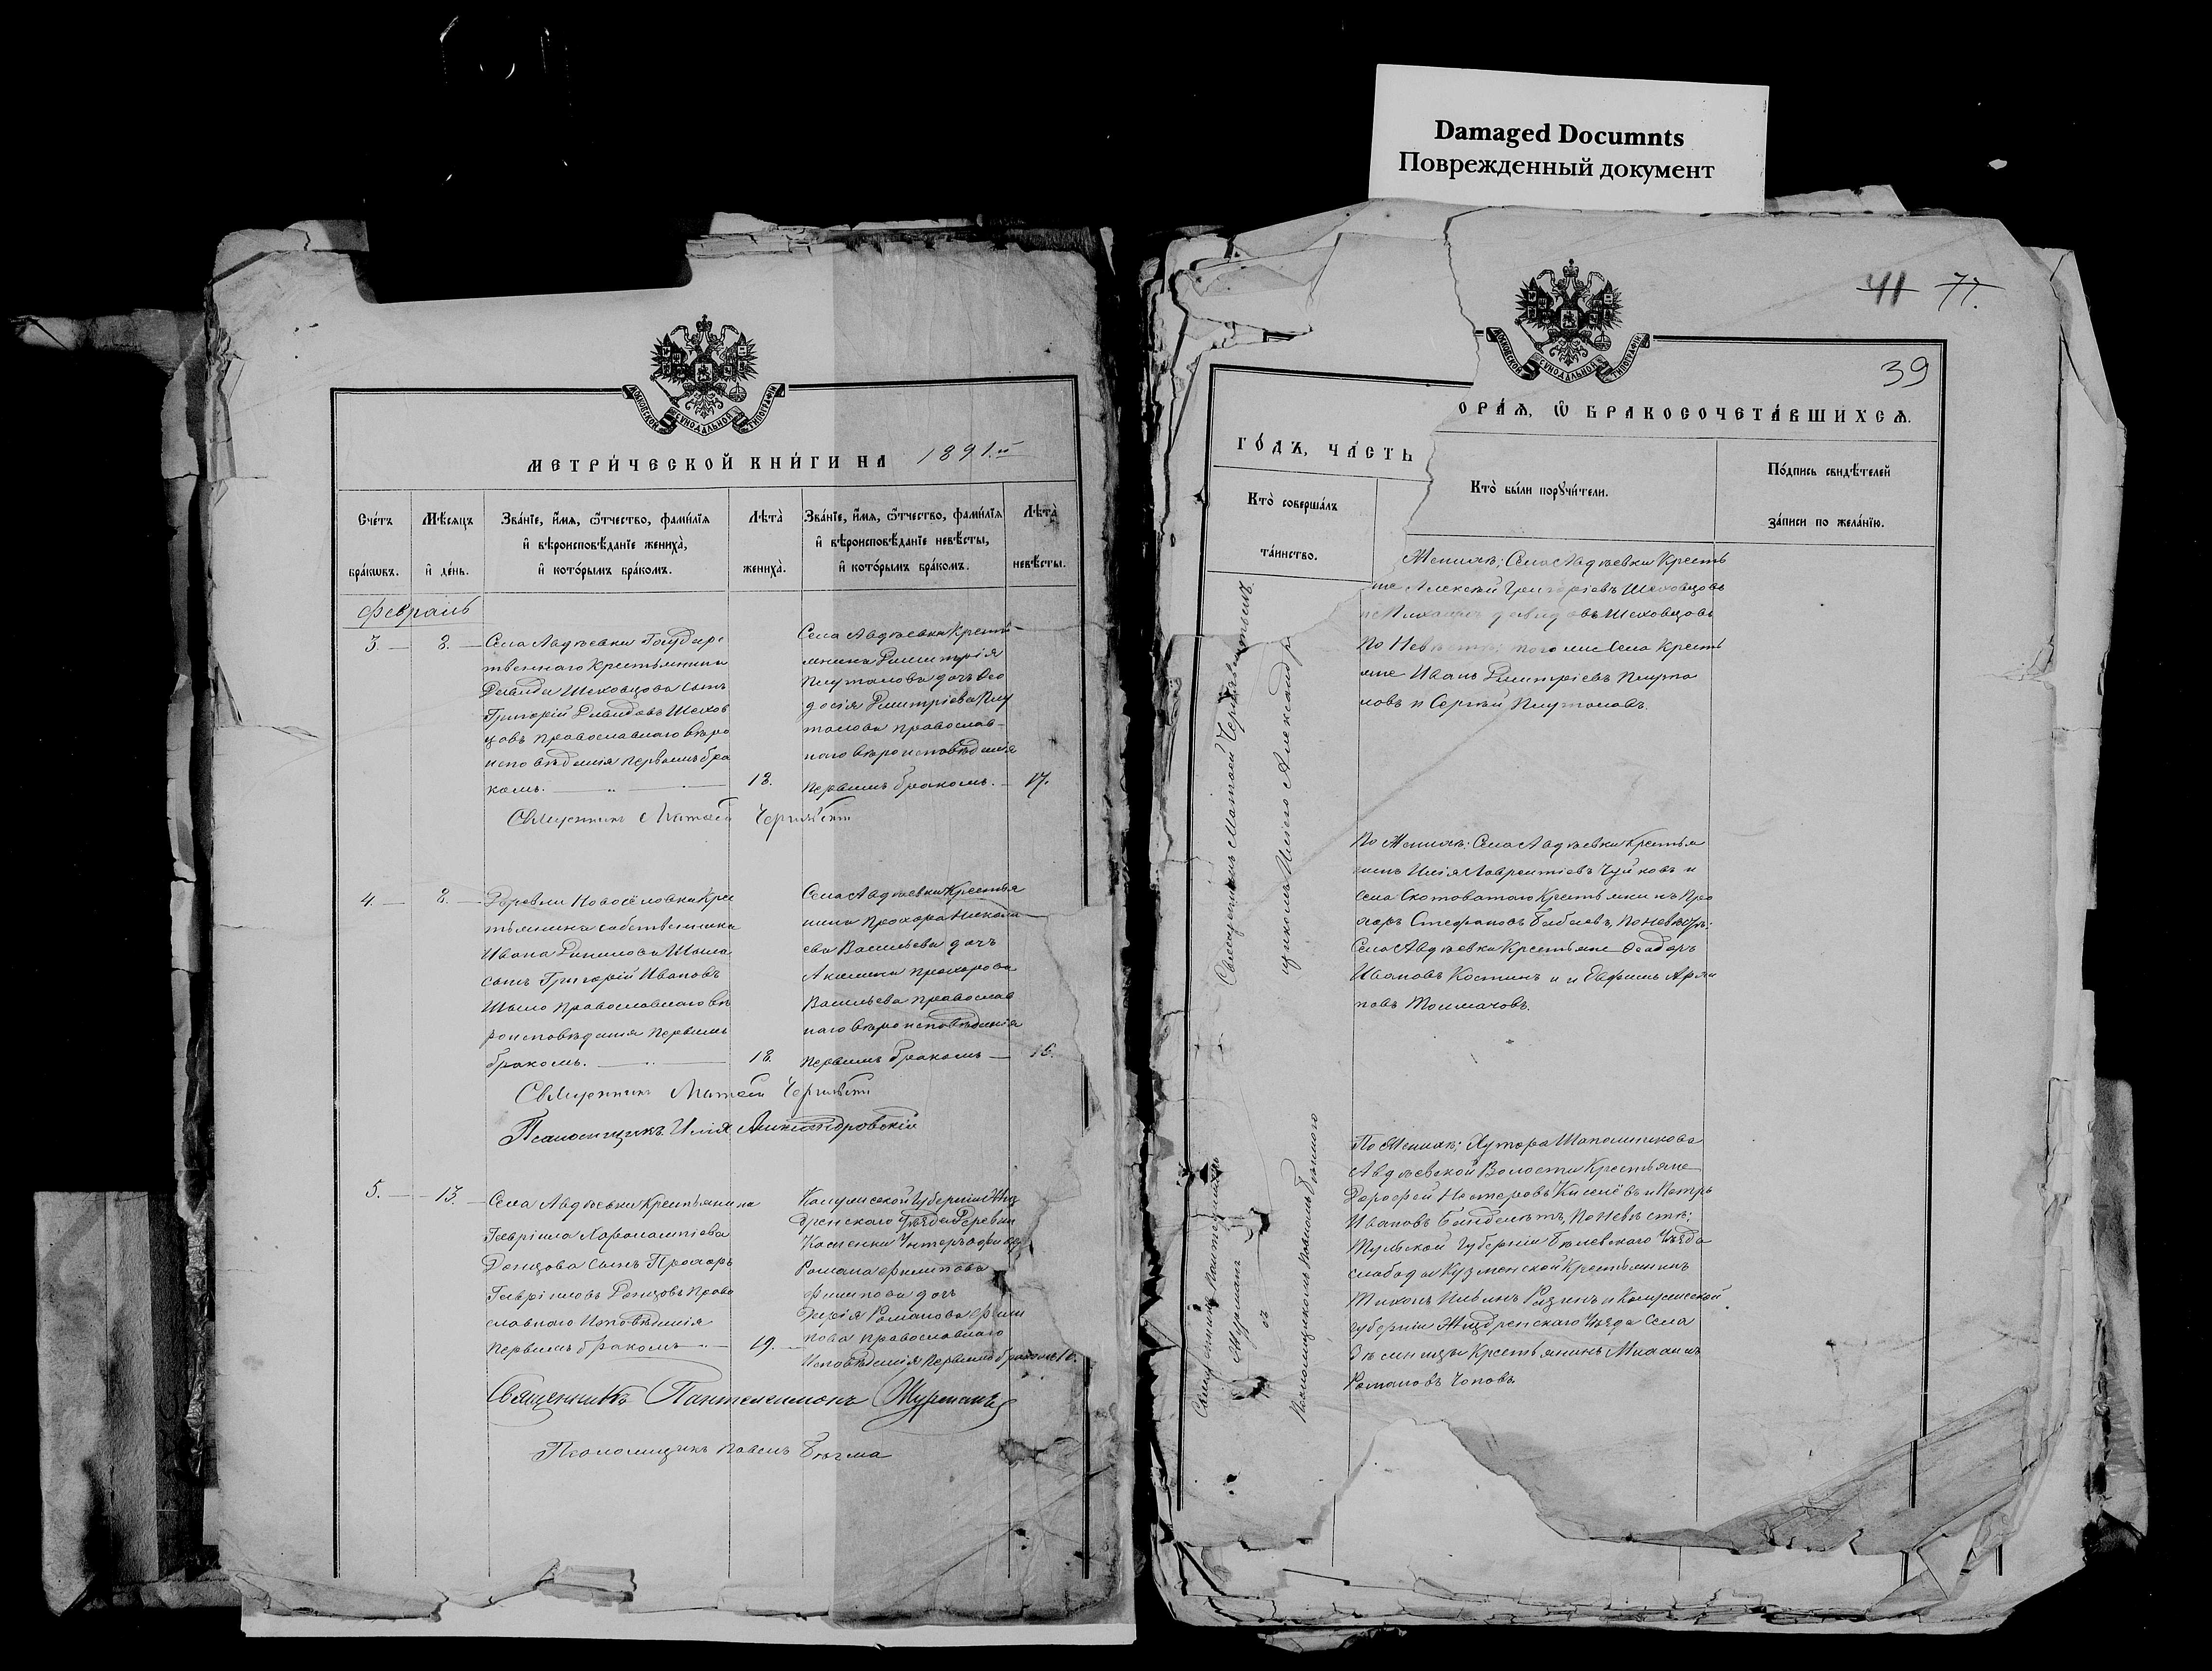 Damaged Documnts
Поврежденный документ
МОСКОВСКОЙ СѴНОДАЛЬНОЙ ТИПОГРАФІИ
МЕТРИ́ЧЕСКОЙ КНИ́ГИ НА 1891.й
Сче́тъ бра́кωвъ.
Мѣ́сяцъ и҆ де́нь.
Зва́нїе, и҆́мѧ, ѻ҆́тчество, фами́лїѧ
и҆ вѣроисповѣ́данїе жениха̀,
и҆ кото́рымъ бра́комъ.
Лѣ́та̀ жениха̀.
Зва́нїе, и҆́мѧ, ѻ҆́тчество, фами́лїѧ
и҆ вѣроисповѣ́данїе невѣ́сты,
и҆ кото́рымъ бра́комъ.
Лѣ́та̀ невѣ́сты.
Февраль
3. — 8. — Села Авдѣевки Государс
твеннаго Крестьянина
Давида Шеховцова сынъ
Григорій Давидовъ Шехов
цовъ православнаго вѣро
исповѣданія первымъ бра
комъ. 18.
Села Авдѣевки Кресть
янина Димитрія
Плуталова дочь Ѳео
досія Димитріева Плу
талова православ-
наго вѣроисповѣданія
первымъ бракомъ. — 17.
Священникъ Матѳей
4. — 8. — Деревни Новосёловки Крес
тьянина собственника
Ивана
сынъ Григорій Ивановъ
православнаго вѣ
роисповѣданія первымъ
бракомъ. 18.
Села Авдѣевки Крестья
нина Прохора Никола
ева Васильева дочь
Акилина Прохорова
Васильева православ
наго вѣроисповѣданія
первымъ бракомъ — 16.
Священникъ Матѳей
Псаломщикъ Илія Александровскій
5. — 13. — Села Авдѣевки Крестьянина
Гавріила Харалампіева
Донцова сынъ Прохоръ
Гавріиловъ Донцовъ право
славнаго исповѣданія
первымъ бракомъ — 19.
Калужской Губерніи Жиз
дренскаго Уѣзда Деревни
Романа Филипова
Филипова дочь
Романова Фили
пова православнаго
исповѣданія первымъ бракомъ 16.
Священникъ Пантелеимонъ Журманъ
Псаломщикъ Павелъ
41 77.
39
МОСКОВСКОЙ СѴНОДАЛЬНОЙ ТИПОГРАФІИ
ГО́ДЪ, ЧА́СТЬ ОРА́Ѧ, Ѽ БРАКОСОЧЕТА́ВШИХСѦ.
Кто̀ соверша́лъ
та́инство.
Кто̀ бы́ли порꙋчи́тели.
По́дпись свидѣ́телей
за́писи по жела́нїю.
Священникъ Матѳей
Женихѣ: Села Авдѣевки Кресть
яне Алексѣй Григоріевъ Шеховцовъ
и Михаилъ Давидовъ Шеховцовъ
По Невѣстѣ: того же Села Кресть
яне Иванъ Димитріевъ Плута
ловъ и Сергѣй Плуталовъ.
По Женихѣ: Села Авдѣевки Крестья
нинъ Илія Лаврентіевъ Чуйковъ и
Села Скотоватаго Крестьянинъ Про
хоръ Стефановъ по Невѣстѣ:
Села Авдѣевки Крестьяне Ѳеодоръ
Ивановъ Костинъ и Евфимъ
повъ Толмачовъ.
Священникъ Пантелеимонъ
Журманъ съ
Псаломщикомъ Павломъ
По Женихѣ: Хутора Шапошникова
Авдѣевской Волости Крестьяне
Дорофей Нестеровъ Киселёвъ и Петръ
Ивановъ по Невѣстѣ:
Тульской Губерніи Бѣлевскаго Уѣзда
слободы Кузменской Крестьянинъ
Тихонъ Ильинъ и Калужской
губерніи Жиздренскаго Уѣзда Села
Крестьянинъ Михаилъ
Романовъ